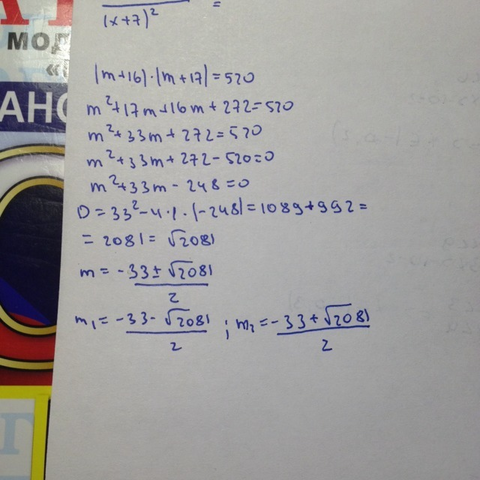 (x+7)² =
МОД
«
АНО
(m+16)·(m+17)=520
m²+17m+16m+272=520
m²+33m+272=520
m²+33m+272-520=0
m²+33m-248=0
D=33²-4·1·(-248)=1089+992=
=2081=√2081
m=-33±√2081
2
m₁=-33-√2081 ; m₂=-33+√2081
2 2